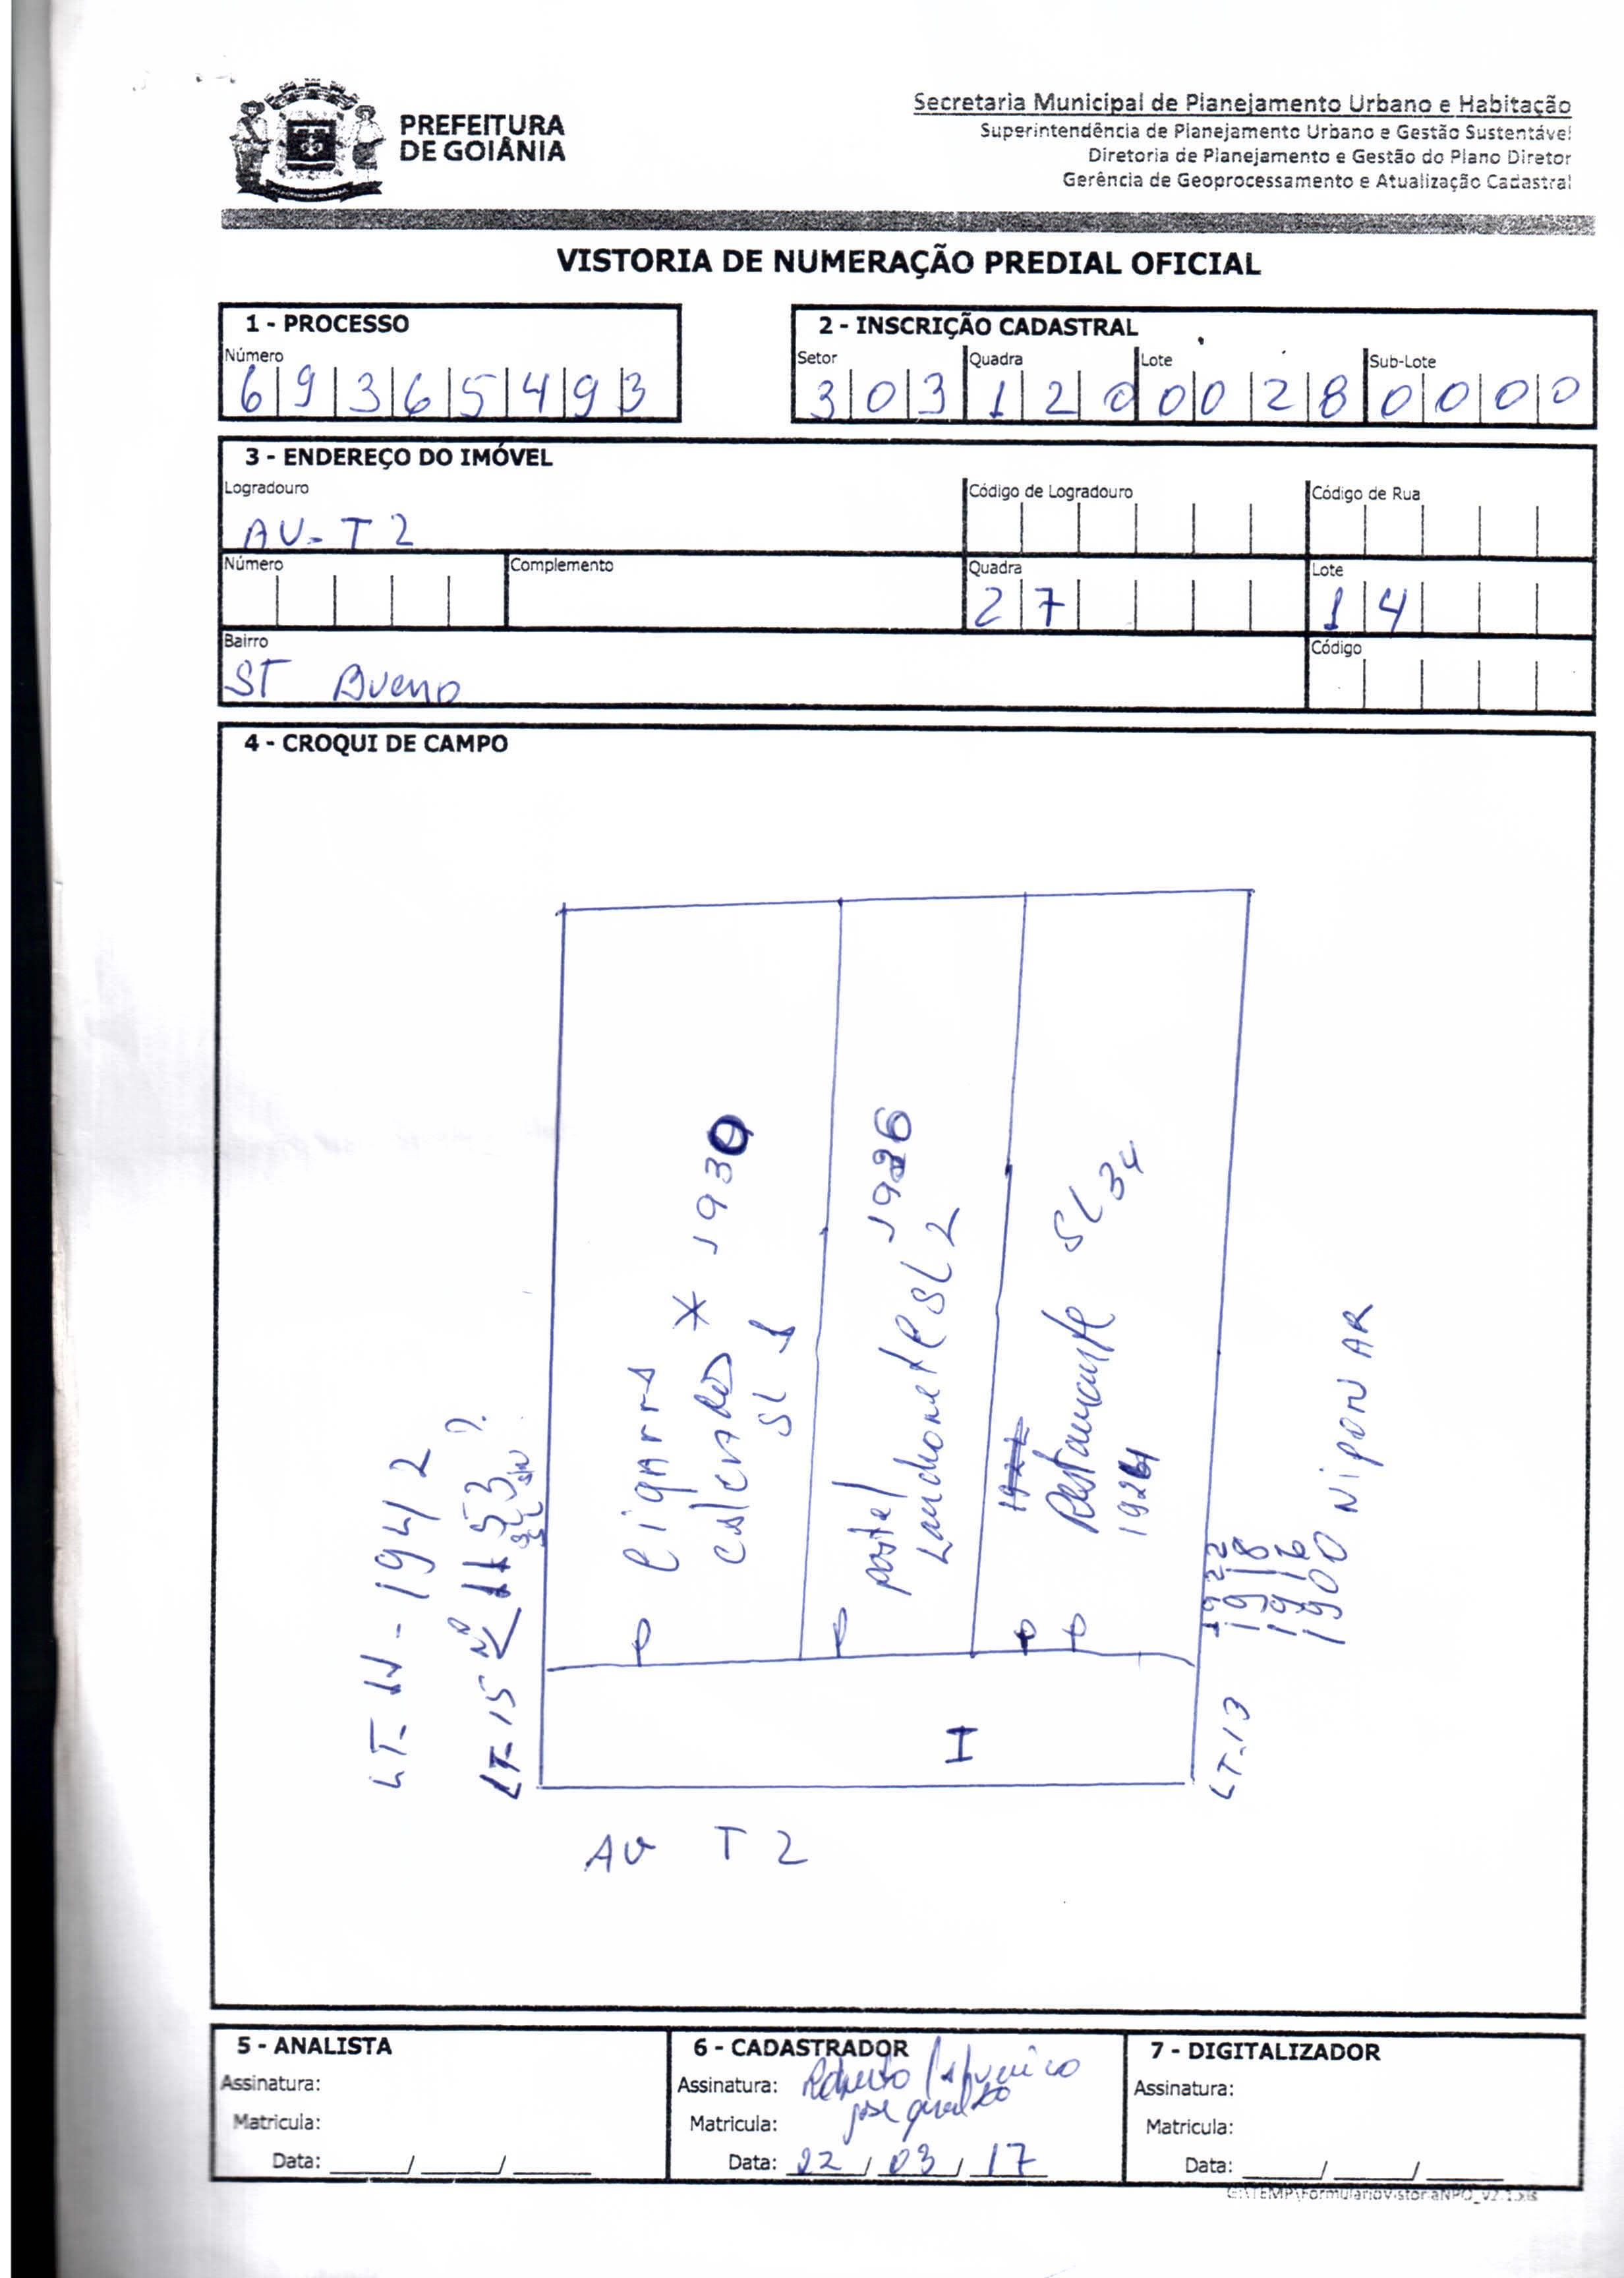 PREFEITURA
DE GOIÂNIA
Secretaria Municipal de Planejamento Urbano e Habitação
Superintendência de Planejamento Urbano e Gestão Sustentável
Diretoria de Planejamento e Gestão do Plano Diretor
Gerência de Geoprocessamento e Atualização Cadastral
VISTORIA DE NUMERAÇÃO PREDIAL OFICIAL
1 - PROCESSO
Número
69365493
2 - INSCRIÇÃO CADASTRAL
Setor Quadra Lote Sub-Lote
303 120 0028 0000
3 - ENDEREÇO DO IMÓVEL
Logradouro Código de Logradouro Código de Rua
AV- T 2
Número Complemento Quadra Lote
27 14
Bairro Código
ST Bueno
4 - CROQUI DE CAMPO
LT- - 1942
LT-15 Nº 1153
* 1930
SL 1
pastel 1926
SL 2
1922
Restaurante SL 34
1926
1922
1918
1916
1900 Nipon AR
LT-13
I
AV T 2
5 - ANALISTA
Assinatura:
Matricula:
Data: / /
6 - CADASTRADOR
Assinatura: Roberto
Matricula:
Data: 22 / 03 / 17
7 - DIGITALIZADOR
Assinatura:
Matricula:
Data: / /
G:\TEMP\FormularioVistoriaNPO_V2.1.xls